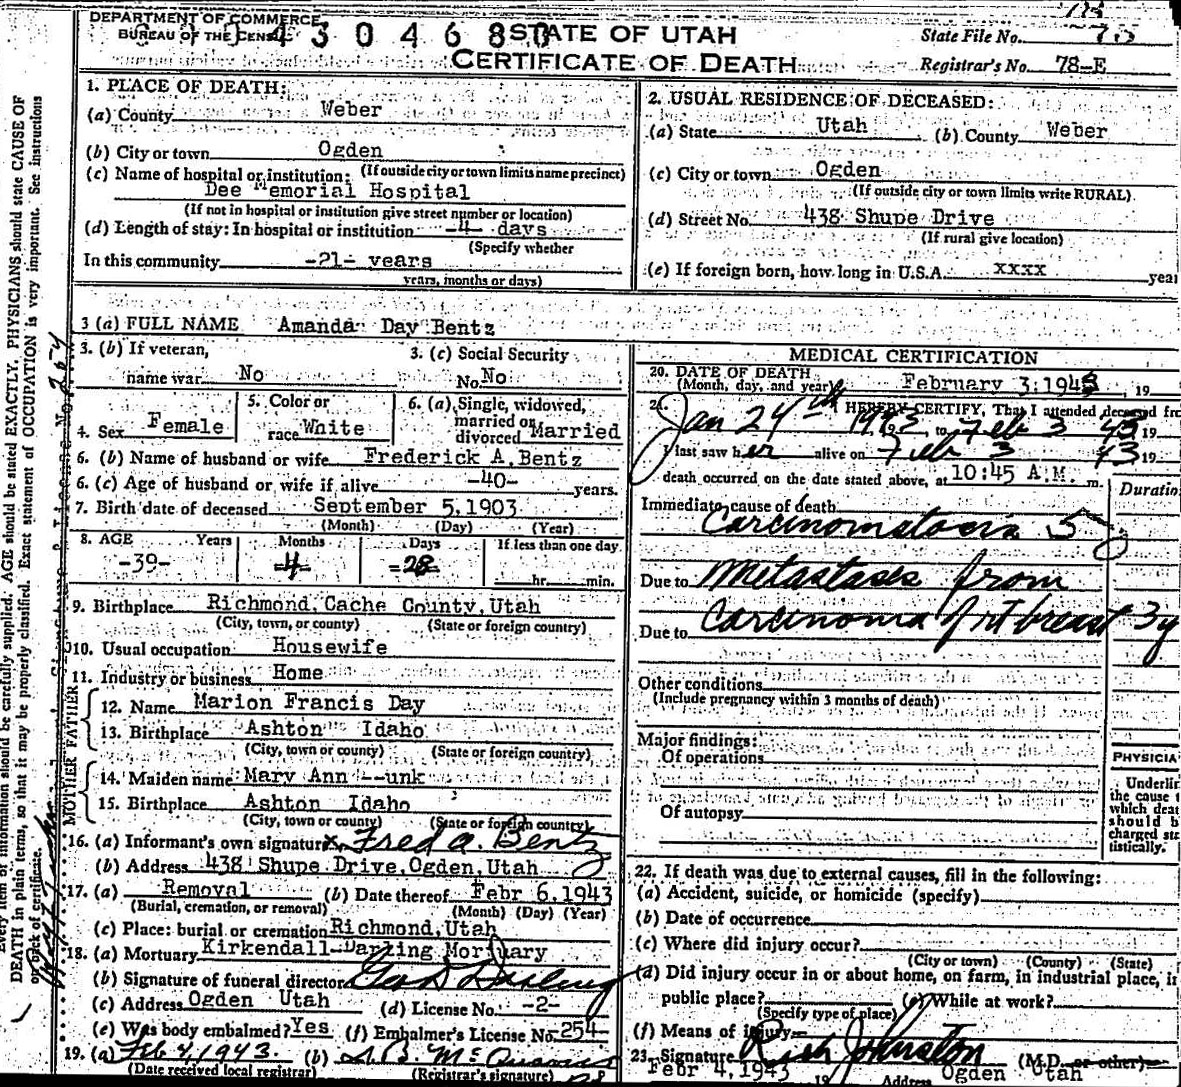 DEPARTMENT OF COMMERCE
BUREAU OF THE CENSUS
4 3 0 4 6 8 0
STATE OF UTAH
CERTIFICATE OF DEATH
State File No.
Registrar's No. 78-E
1. PLACE OF DEATH:
(a) County Weber
(b) City or town Ogden
(If outside city or town limits name precinct)
(c) Name of hospital or institution:
Dee Memorial Hospital
(If not in hospital or institution give street number or location)
(d) Length of stay: In hospital or institution -4- days
(Specify whether
In this community -21- years
years, months or days)
2. USUAL RESIDENCE OF DECEASED:
(a) State Utah (b) County Weber
(c) City or town Ogden
(If outside city or town limits write RURAL)
(d) Street No. 438 Shupe Drive
(If rural give location)
(e) If foreign born, how long in U.S.A. xxxx year
3 (a) FULL NAME Amanda Day Bentz
3. (b) If veteran, name war No
3. (c) Social Security No. No
4. Sex Female
5. Color or race White
6. (a) Single, widowed, married or divorced Married
6. (b) Name of husband or wife Frederick A. Bentz
6. (c) Age of husband or wife if alive -40- years.
7. Birth date of deceased September 5, 1903
(Month) (Day) (Year)
8. AGE Years Months Days If less than one day
-39- -4- -28- hr. min.
9. Birthplace Richmond, Cache County, Utah
(City, town, or county) (State or foreign country)
10. Usual occupation Housewife
11. Industry or business Home
FATHER
12. Name Marion Francis Day
13. Birthplace Ashton Idaho
(City, town or county) (State or foreign country)
MOTHER
14. Maiden name Mary Ann --unk
15. Birthplace Ashton Idaho
(City, town or county) (State or foreign country)
16. (a) Informant's own signature x Fred A. Bentz
(b) Address 438 Shupe Drive, Ogden, Utah
17. (a) Removal (b) Date thereof Febr 6, 1943
(Burial, cremation, or removal) (Month) (Day) (Year)
(c) Place: burial or cremation Richmond, Utah
18. (a) Mortuary Kirkendall-Darling Mortuary
(b) Signature of funeral director Geo D Darling
(c) Address Ogden Utah (d) License No. -2-
(e) Was body embalmed? Yes (f) Embalmer's License No. 254-
19. (a) Feb 4, 1943. (b)
(Date received local registrar) (Registrar's signature)
MEDICAL CERTIFICATION
20. DATE OF DEATH
(Month, day, and year) February 3, 1943, 19
21. I HEREBY CERTIFY, That I attended deceased fro
Jan 24th 1943, to Feb 3 43 19
I last saw her alive on Feb 3 43 19
death occurred on the date stated above, at 10:45 A.M. m.
Duratio
Immediate cause of death
Carcinomatosis 5
Due to Metastases from
Due to Carcinoma of rt breast 3y
Other conditions
(Include pregnancy within 3 months of death)
Major findings:
Of operations
Of autopsy
PHYSICIA
Underlin
the cause t
which deat
should b
charged sta
tistically.
22. If death was due to external causes, fill in the following:
(a) Accident, suicide, or homicide (specify)
(b) Date of occurrence
(c) Where did injury occur?
(City or town) (County) (State)
(d) Did injury occur in or about home, on farm, in industrial place, in
public place? (e) While at work?
(Specify type of place)
(f) Means of injury
23. Signature Rich Johnston (M.D. or other)
Febr 4, 1943 19 Address Ogden Utah
Every item of information should be carefully supplied. AGE should be stated EXACTLY. PHYSICIANS should state CAUSE OF
DEATH in plain terms, so that it may be properly classified. Exact statement of OCCUPATION is very important. See instructions
on back of certificate.